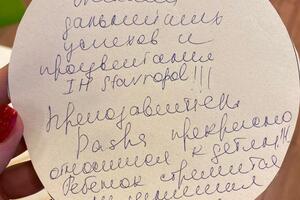 дальнейших
успехов и
процветания
IH Stavropol!!!
Преподаватели
прекрасно
относится к детям!!!
Ребёнок стремится